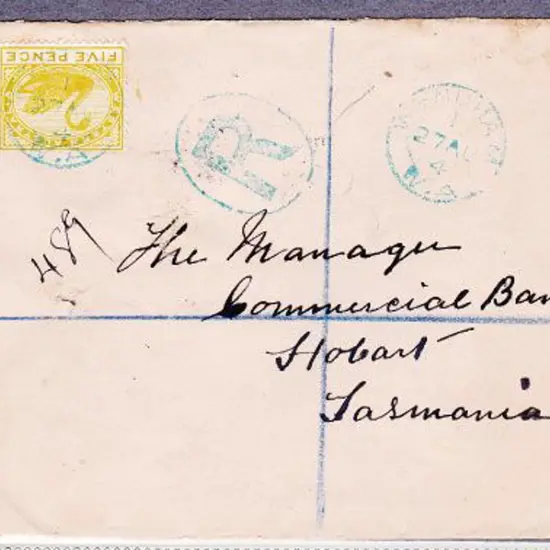 FIVE PENCE
R
27 AU
4
W.A
489
The Manager
Commercial Ban
Hobart
Tasmania